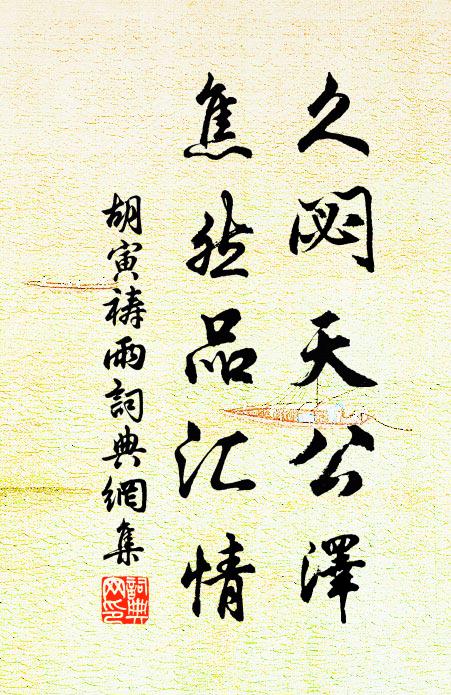 久閟天公澤
焦然品汇情
胡寅禱雨詞典網集
詞典網印